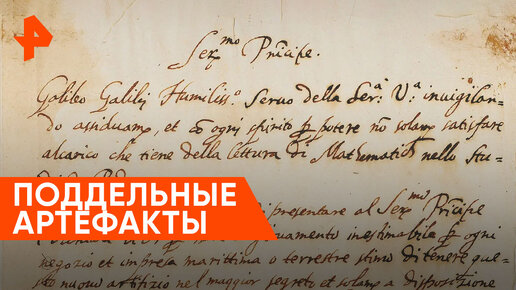 Ser.mo Principe.
Galileo Galilei Humiliss.o Servo della Ser.a V.a invigilan-
do assiduam.te, et cō ogni spirito p potere nō solam.te satisfare
alcarico che tiene della lettura di Mathematich nello Stu-
ПОДДЕЛЬНЫЕ
АРТЕФАКТЫ
presentare al Ser.mo Principe
inestimabile p ogni
negozio et impresa marittima o terrestre stimo di tenere que-
sto nuovo artifizio nel maggior segreto et solam a disposizione